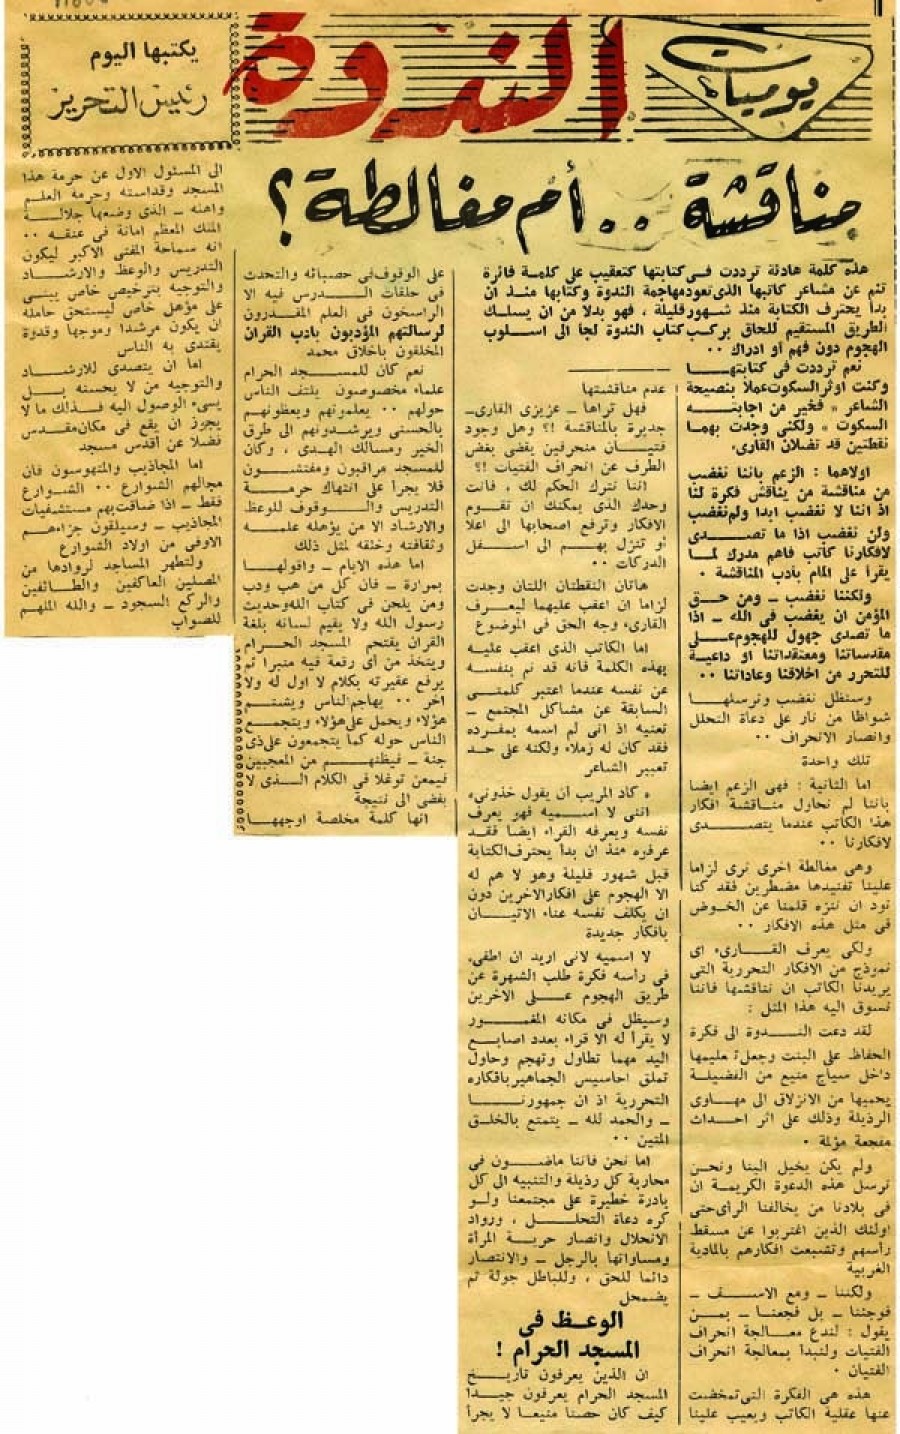 يوميات
الندوة
يكتبها اليوم
رئيس التحرير
مناقشة .. أم مغالطة ؟
هذه كلمة هادئة ترددت في كتابتها كتعقيب على كلمة فائرة
تنم عن مشاعر كاتبها الذى تعود مهاجمة الندوة وكتابها منذ ان
بدأ يحترف الكتابة منذ شهور قليلة ، فهو بدلا من ان يسلك
الطريق المستقيم للحاق بركب كتاب الندوة لجأ الى اسلوب
الهجوم دون فهم أو ادراك ..
نعم ترددت في كتابتها
وكنت اوثر السكوت عملا بنصيحة
الشاعر « فخير من اجابته
السكوت » ولكنى وجدت بهما
نقطتين قد تضلان القارىء
اولاهما : الزعم باننا نغضب
من مناقشة من يناقش فكرة لنا
اذ اننا لا نغضب ابدا ولم نغضب
ولن نغضب اذا ما تصدى
لافكارنا كاتب فاهم مدرك لما
يقرأ على المام بأدب المناقشة .
ولكننا نغضب – ومن حق
المؤمن ان يغضب فى الله – اذا
ما تصدى جهول للهجوم على
مقدساتنا ومعتقداتنا او داعية
للتحرر من اخلاقنا وعاداتنا ..
وسنظل نغضب ونرسلها
شواظا من نار على دعاة التحلل
وانصار الانحراف ..
تلك واحدة
اما الثانية : فهى الزعم ايضا
باننا لم نحاول مناقشة افكار
هذا الكاتب عندما يتصدى
لافكارنا ..
وهى مغالطة اخرى نرى لزاما
علينا تفنيدها مضطرين فقد كنا
نود ان ننزه قلمنا عن الخوض
فى مثل هذه الافكار ..
ولكى يعرف القارىء اى
نموذج من الافكار التحررية التى
يريدنا الكاتب ان نناقشها فاننا
نسوق اليه هذا المثل :
لقد دعت الندوة الى فكرة
الحفاظ على البنت وجعل تعليمها
داخل سياج منيع من الفضيلة
يحميها من الانزلاق الى مهاوى
الرذيلة وذلك على اثر احداث
مفجعة مؤلمة .
ولم يكن يخيل الينا ونحن
نرسل هذه الدعوة الكريمة ان
فى بلادنا من يخالفنا الرأى حتى
اولئك الذين اغتربوا عن مسقط
رأسهم وتشبعت افكارهم بالمادية
الغربية
ولكننا – ومع الاسف –
فوجئنا – بل فجعنا – بمن
يقول : لندع معالجة انحراف
الفتيات ولنبدأ بمعالجة انحراف
الفتيان .
هذه هى الفكرة التى تمخضت
عنها عقلية الكاتب ويعيب علينا
عدم مناقشتها
فهل تراها – عزيزى القارىء –
جديرة بالمناقشة !؟ وهل وجود
فتيان منحرفين يقضى بغض
الطرف عن انحراف الفتيات !؟
اننا نترك الحكم لك ، فانت
وحدك الذى يمكنك ان تقوم
الافكار وترفع اصحابها الى اعلا
أو تنزل بهم الى اسفل
الدركات ..
هاتان النقطتان اللتان وجدت
لزاما ان اعقب عليهما ليعرف
القارىء وجه الحق فى الموضوع
اما الكاتب الذى اعقب عليه
بهذه الكلمة فانه قد نم بنفسه
عن نفسه عندما اعتبر كلمتى
السابقة عن مشاكل المجتمع –
تعنيه اذ انى لم اسمه بمفرده
فقد كان له زملاء ولكنه على حد
تعبير الشاعر
« كاد المريب أن يقول خذونى »
اننى لا اسميه فهو يعرف
نفسه ويعرفه القراء ايضا فقد
عرفوه منذ ان بدأ يحترف الكتابة
قبل شهور قليلة وهو لا هم له
الا الهجوم على افكار الاخرين دون
ان يكلف نفسه عناء الاتيان
بافكار جديدة
لا اسميه لانى اريد ان اطفىء
فى رأسه فكرة طلب الشهرة عن
طريق الهجوم على الاخرين
وسيظل فى مكانه المغمور
لا يقرأ له الا قراء بعدد اصابع
اليد مهما تطاول وتهجم وحاول
تملق احاسيس الجماهير بافكاره
التحررية اذ ان جمهورنا
– والحمد لله – يتمتع بالخلق
المتين ..
اما نحن فاننا ماضون فى
محاربة كل رذيلة والتنبيه الى كل
بادرة خطيرة على مجتمعنا ولو
كره دعاة التحلل ، ورواد
الانحلال وانصار حرية المرأة
ومساواتها بالرجل – والانتصار
دائما للحق ، وللباطل جولة ثم
يضمحل
الوعظ فى
المسجد الحرام !
ان الذين يعرفون تاريخ
المسجد الحرام يعرفون جيدا
كيف كان حصنا منيعا لا يجرأ
على الوقوف فى حصبائه والتحدث
فى حلقات الدرس فيه الا
الراسخون فى العلم المقدرون
لرسالتهم المؤدبون بادب القران
المخلقون باخلاق محمد
نعم كان للمسجد الحرام
علماء مخصوصون يلتف الناس
حولهم .. يعلمونهم ويعظونهم
بالحسنى ويرشدونهم الى طرق
الخير ومسالك الهدى ، وكان
للمسجد مراقبون ومفتشون
فلا يجرأ على انتهاك حرمة
التدريس والوقوف للوعظ
والارشاد الا من يؤهله علمه
وثقافته وخلقه لمثل ذلك
اما هذه الايام – واقولها
بمرارة – فان كل من هب ودب
ومن يلحن فى كتاب الله وحديث
رسول الله ولا يقيم لسانه بلغة
القران يقتحم المسجد الحرام
ويتخذ من أى رقعة فيه منبرا ثم
يرفع عقيرته بكلام لا اول له ولا
اخر .. يهاجم الناس ويشتم
هؤلاء ويحمل على هؤلاء ويتجمع
الناس حوله كما يتجمعون على ذى
جنة – فيظنهم من المعجبين
فيمعن توغلا فى الكلام الذى لا
يفضى الى نتيجة
انها كلمة مخلصة اوجهها
الى المسئول الاول عن حرمة هذا
المسجد وقداسته وحرمة العلم
واهنه – الذى وضعها جلالة
الملك المعظم امانة فى عنقه ..
انه سماحة المفتى الاكبر ليكون
التدريس والوعظ والارشاد
والتوجيه بترخيص خاص يبنى
على مؤهل خاص ليستحق حامله
ان يكون مرشدا وموجها وقدوة
يقتدى به الناس
اما ان يتصدى للارشاد
والتوجيه من لا يحسنه بل
يسىء الوصول اليه فذلك ما لا
يجوز ان يقع فى مكان مقدس
فضلا عن أقدس مسجد
اما المجاذيب والمتهوسون فان
مجالهم الشوارع .. الشوارع
فقط – اذا ضاقت بهم مستشفيات
المجاذيب – وسيلقون جزاءهم
الاوفى من اولاد الشوارع
ولتطهر المساجد لروادها من
المصلين العاكفين والطائفين
والركع السجود – والله الملهم
للصواب